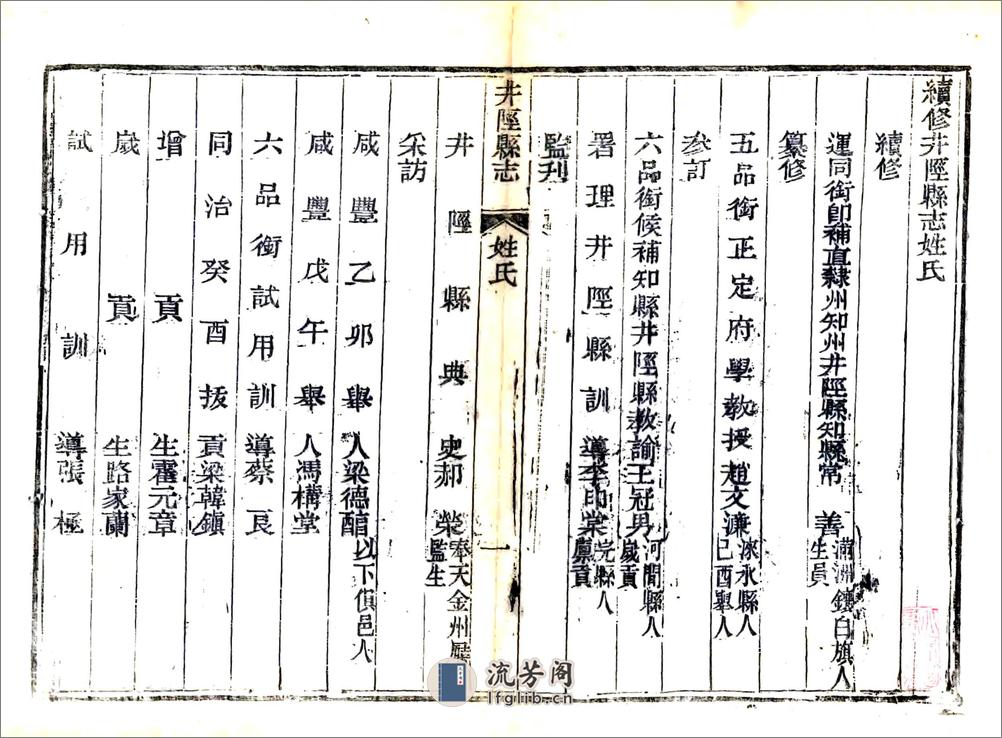 續修井陘縣志姓氏
續修
運同銜卽補直隸州知州井陘縣知縣常 善 滿洲鑲白旗人 生員
纂修
五品銜正定府學教授趙文濂 淶水縣人 己酉舉人
參訂
六品銜候補知縣井陘縣教諭王冠男 河間縣人 歲貢
署理井陘縣訓導李印棠 完縣人 廩貢
監刋
井陘縣志
姓氏
一
井陘縣典史郝 榮 奉天金州廳 監生
采訪
咸豐乙卯舉人梁德醑 以下俱邑人
咸豐戊午舉人馮構堂
六品銜試用訓導蔡 艮
同治癸酉拔貢梁韓鎮
增貢生霍元章
歲貢生路家蘭
試用訓導張 極
流芳阁
lfglib.cn